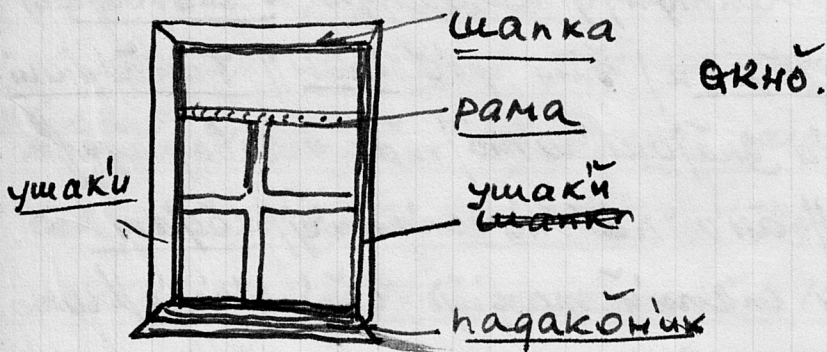 шапка
акно́.
рама
ушак'и
ушак'и́
падако́н'ик